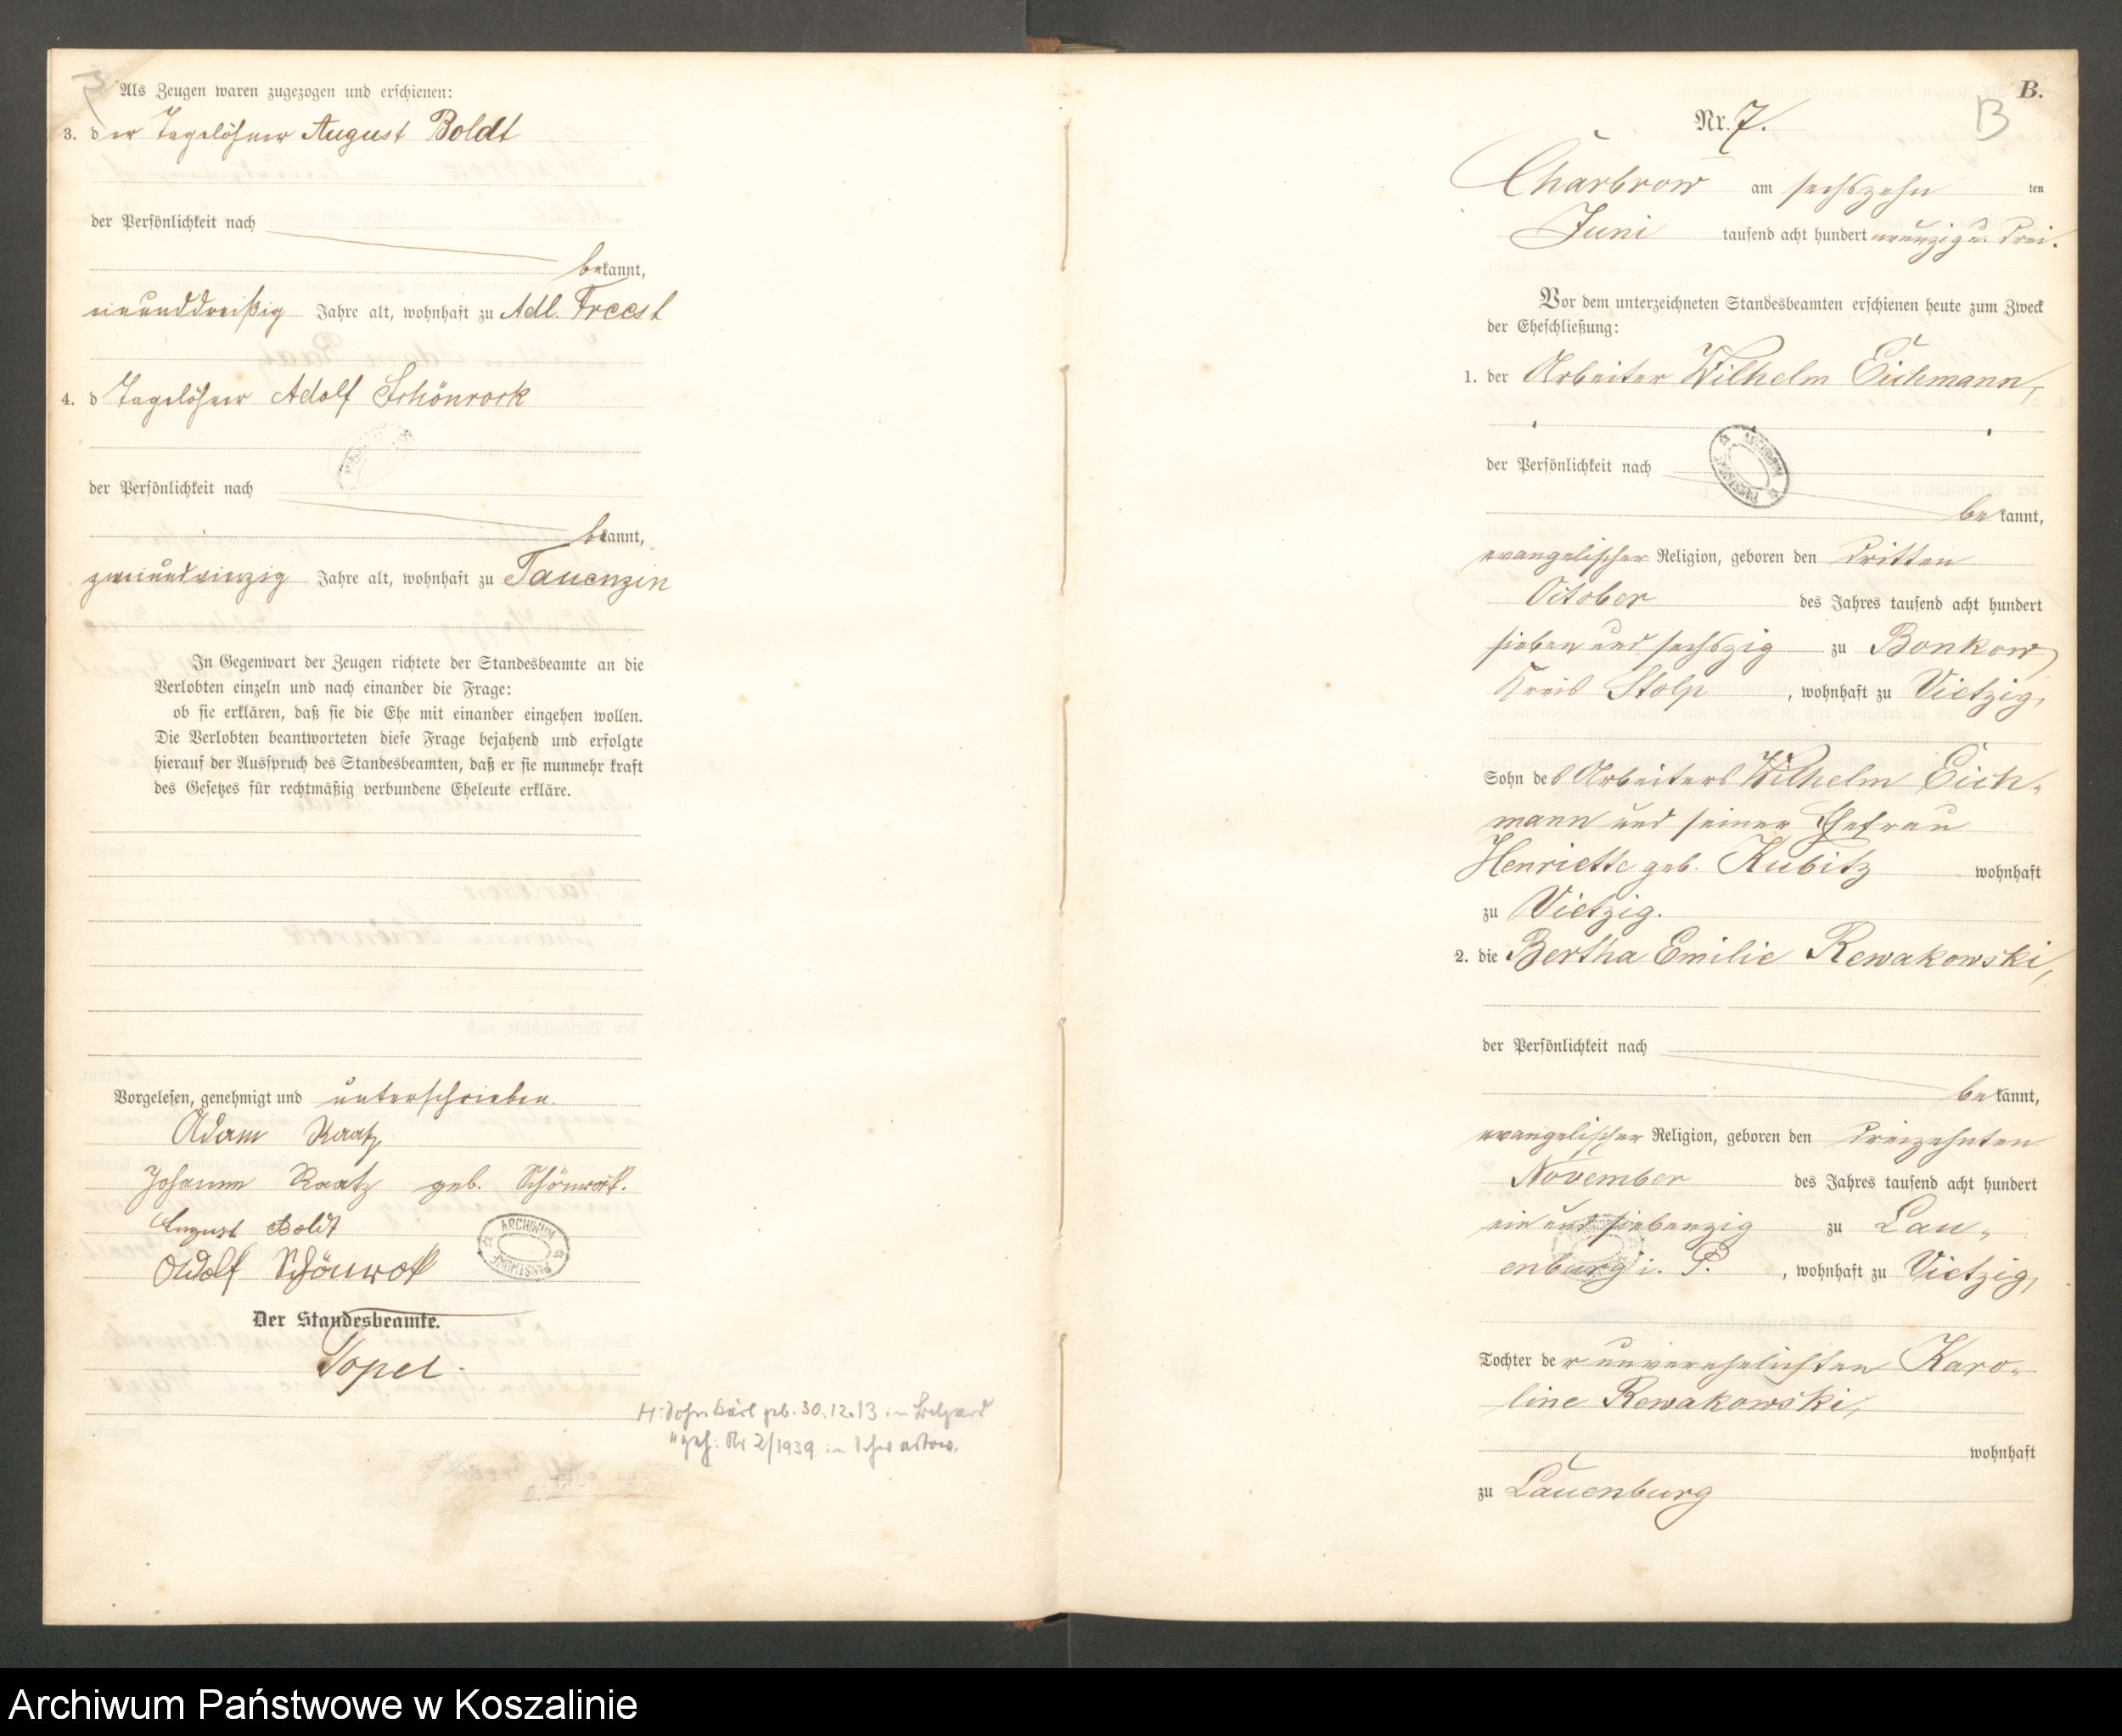 Als Zeugen waren zugezogen und erschienen:
3. der Tagelöhner August Boldt
der Persönlichkeit nach
bekannt,
neununddreißig Jahre alt, wohnhaft zu Adl. Freest
4. d Tagelöhner Adolf Schönrock
der Persönlichkeit nach
bekannt,
zweiundvierzig Jahre alt, wohnhaft zu Tauenzin
In Gegenwart der Zeugen richtete der Standesbeamte an die
Verlobten einzeln und nach einander die Frage:
ob sie erklären, daß sie die Ehe mit einander eingehen wollen.
Die Verlobten beantworteten diese Frage bejahend und erfolgte
hierauf der Ausspruch des Standesbeamten, daß er sie nunmehr kraft
des Gesetzes für rechtmäßig verbundene Eheleute erkläre.
Vorgelesen, genehmigt und unterschrieben.
Adam Raatz
Johanne Raatz geb. Schönrock.
August Boldt
Adolf Schönrock
ARCHIWUM PAŃSTWOWE
Der Standesbeamte.
Topel.
H: Sohn Karl geb. 30.12.13 in Belgard
" geh: Nr 2/1939 in
B.
B
Nr. 7.
Charbrow am sechszehn ten
Juni tausend acht hundert neunzig u. drei.
Vor dem unterzeichneten Standesbeamten erschienen heute zum Zweck
der Eheschließung:
1. der Arbeiter Wilhelm Eichmann,
der Persönlichkeit nach
ARCHIWUM PAŃSTWOWE
bekannt,
evangelischer Religion, geboren den dritten
October des Jahres tausend acht hundert
sieben und sechszig zu Bonkow
Kreis Stolp, wohnhaft zu Vietzig,
Sohn des Arbeiters Wilhelm Eich-
mann und seiner Ehefrau
Henriette geb. Kubitz wohnhaft
zu Vietzig.
2. die Bertha Emilie Rewakowski,
der Persönlichkeit nach
bekannt,
evangelischer Religion, geboren den dreizehnten
November des Jahres tausend acht hundert
ein und siebenzig zu Lau-
enburg i. P., wohnhaft zu Vietzig,
Tochter der unverehelichten Karo-
line Rewakowski,
wohnhaft
zu Lauenburg
Archiwum Państwowe w Koszalinie